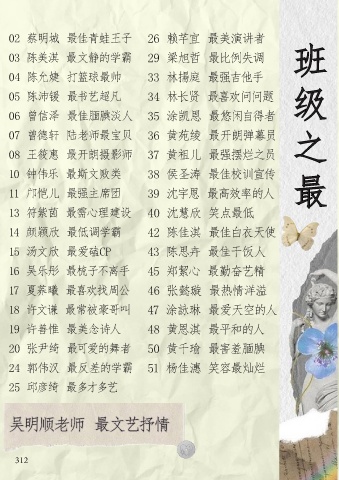 班级之最
02 蔡明城 最佳青蛙王子
03 陈美淇 最文静的学霸
04 陈允婕 打篮球最帅
05 陈沛锾 最书艺超凡
06 曾信泽 最佳腼腆淡人
07 曾德轩 陆老师最宝贝
08 王筱惠 最开朗摄影师
10 钟伟乐 最斯文败类
11 邝恺儿 最强主席团
13 符紫茵 最需心理建设
14 颜颖欣 最低调学霸
15 汤文欣 最爱磕CP
16 吴乐彤 最梳子不离手
17 夏荞曦 最喜欢找周公
18 许文谦 最常被豪哥叫
19 许善惟 最美念诗人
20 张尹绮 最可爱的舞者
24 郭伟汉 最反差的学霸
25 邱彦绮 最多才多艺
26 赖芊宣 最美演讲者
29 梁旭哲 最比例失调
33 林擿庭 最强吉他手
34 林长贤 最喜欢问问题
35 涂凯恩 最悠闲自得者
36 黄苑绫 最开朗弹幕员
37 黄祖儿 最强摆烂之员
38 侯圣涛 最佳校训宣传
39 沈宇恩 最高效率的人
40 沈慧欣 笑点最低
42 陈佳淇 最佳白衣天使
43 陈思卉 最佳干饭人
45 郑絮心 最勤奋艺精
46 张懿璇 最热情洋溢
47 涂詠琳 最爱天空的人
48 黄恩淇 最平和的人
50 黄千瑜 最害羞腼腆
51 杨佳漶 笑容最灿烂
吴明顺老师 最文艺抒情
312